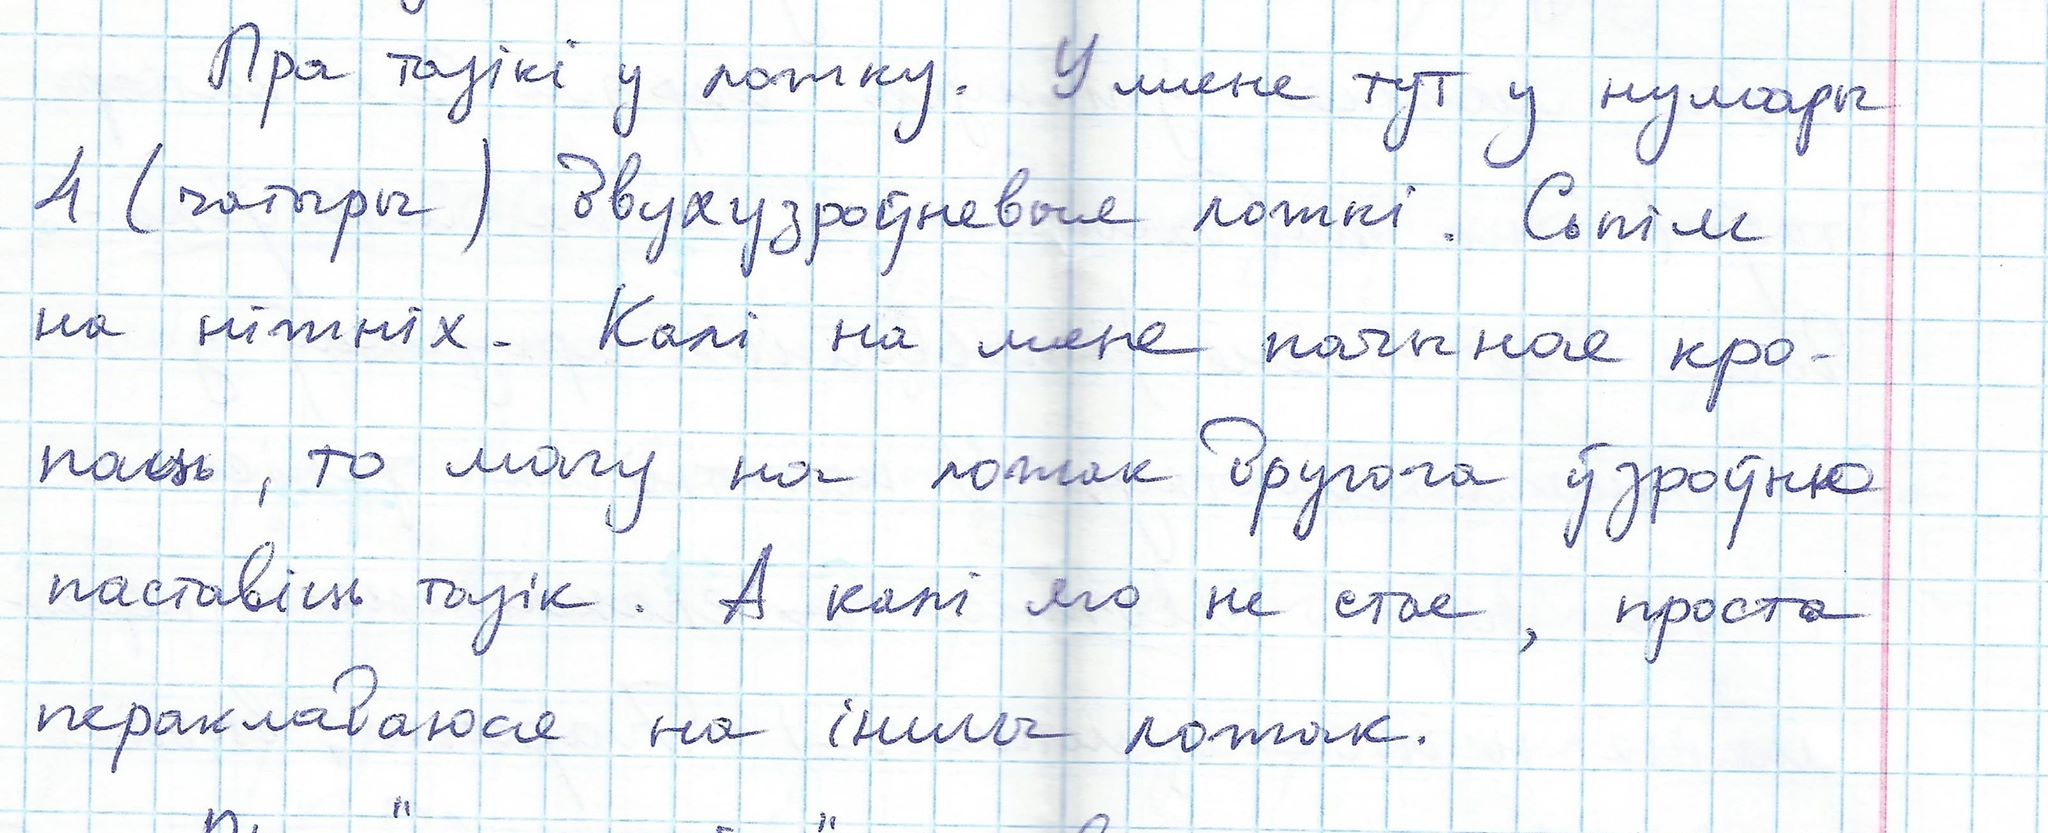 Пра тазікі у ложку. У мяне тут у нумары
4 (чатыры) двухузроўневыя ложкі. Сьпім
на ніжніх. Калі на мяне пачынае кра-
паць, то магу на ложак другога ўзроўню
паставіць тазік. А калі яго не стае, проста
перакладаюся на іншы ложак.